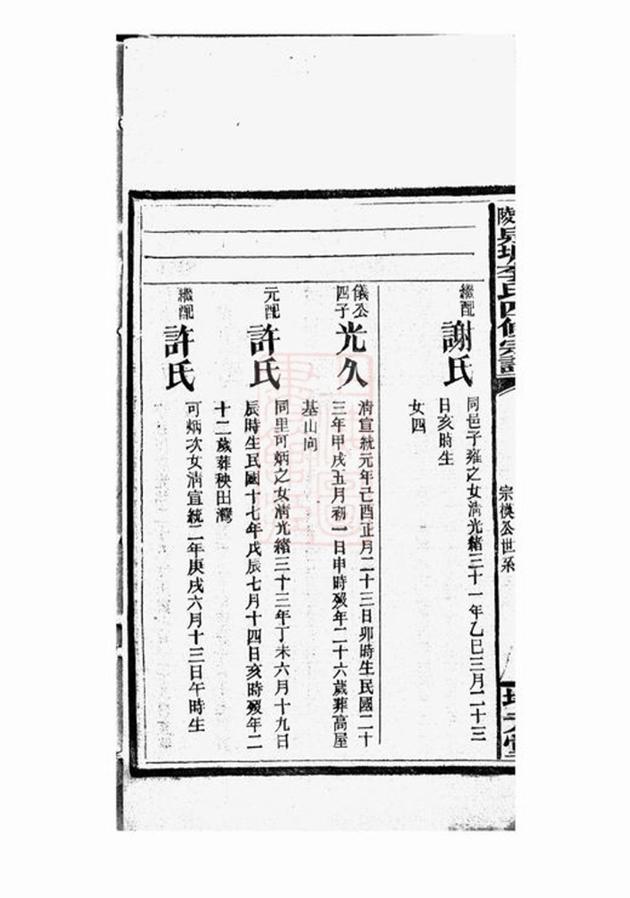 宗模公世系
繼配
謝氏
同邑子雍之女清光緒三十一年乙巳三月二十三
日亥時生
女四
儀公
四子
光久
清宣統元年己酉正月二十三日卯時生民國二十
三年甲戌五月初一日申時歿年二十六歲葬高屋
基山向
元配
許氏
同里可炳之女清光緒三十三年丁未六月十九日
辰時生民國十七年戊辰七月十四日亥時歿年二
十二歲葬秧田灣
繼配
許氏
可炳次女清宣統二年庚戌六月十三日午時生